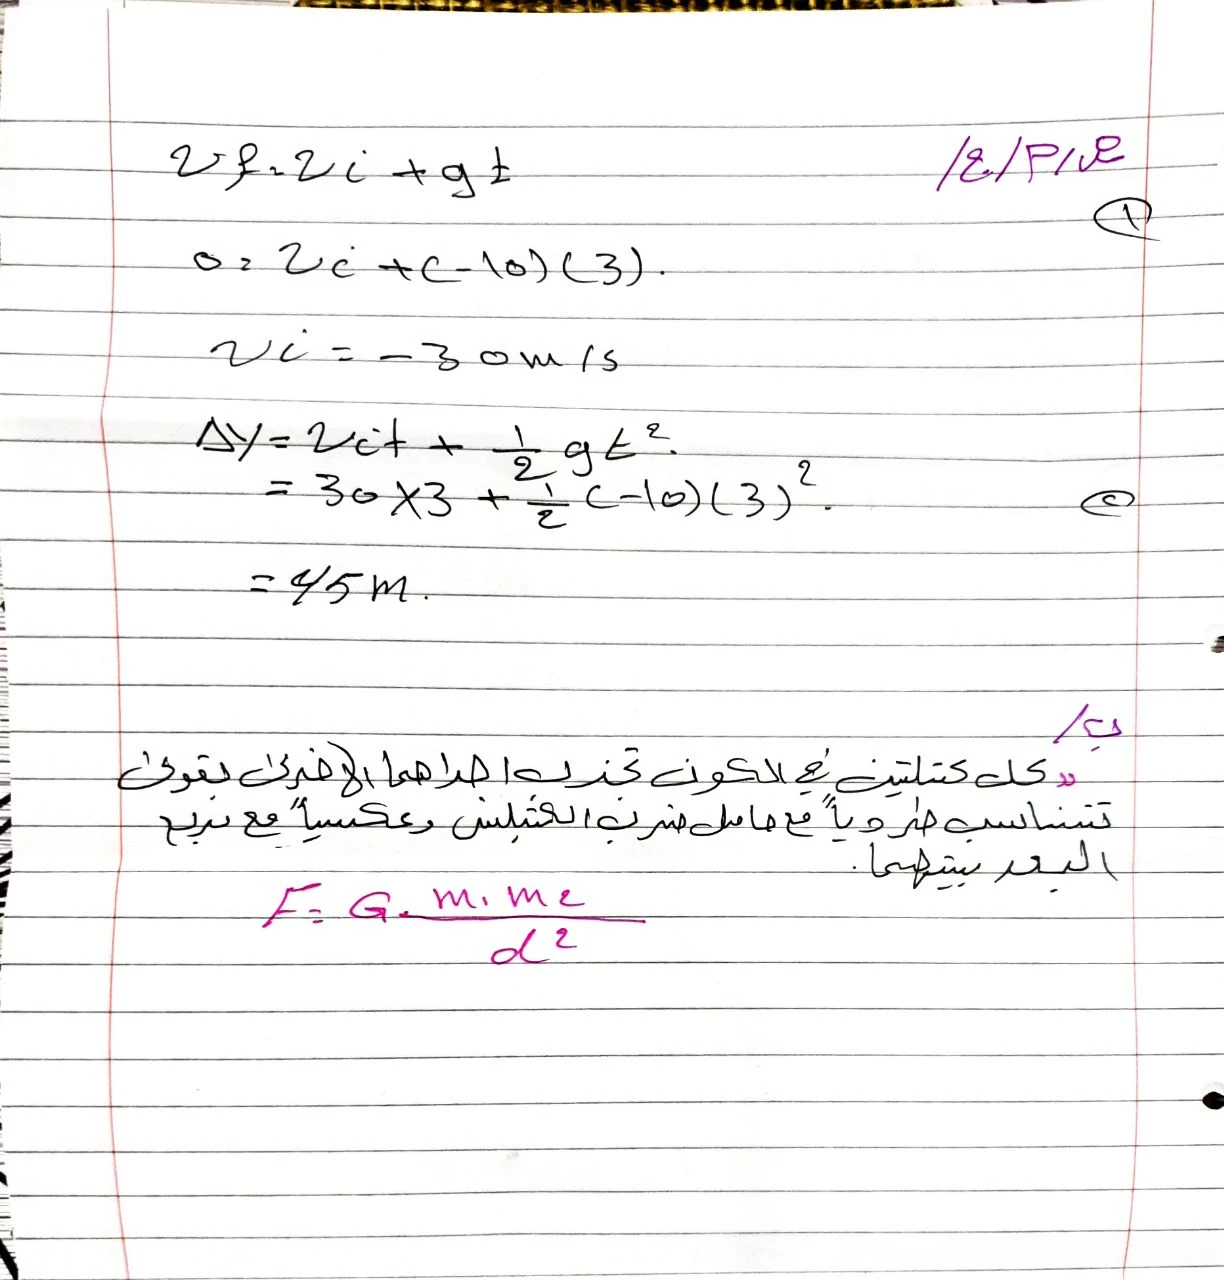 س٢/٤/
①
vf = vi + gt
0 = vi + (-10)(3).
vi = -30 m/s
Δy = vit + 1/2 gt².
②
= 30 × 3 + 1/2 (-10)(3)².
= 45 m.
ب/
"كل كتلتين في الكون تجذب احداهما الأخرى بقوى
تتناسب طردياً مع حاصل ضرب الكتلتين وعكسياً مع مربع
البعد بينهما.
F = G. m₁ m₂ / d²